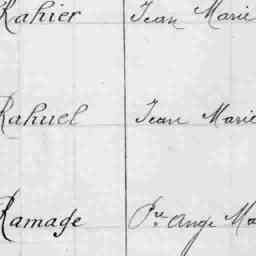 Rahier Jean Marie
Rahuel Jean Marie
Ramage Pre Ange Ma